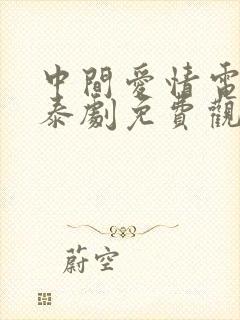 中間愛情電
泰劇免費觀
蔚空